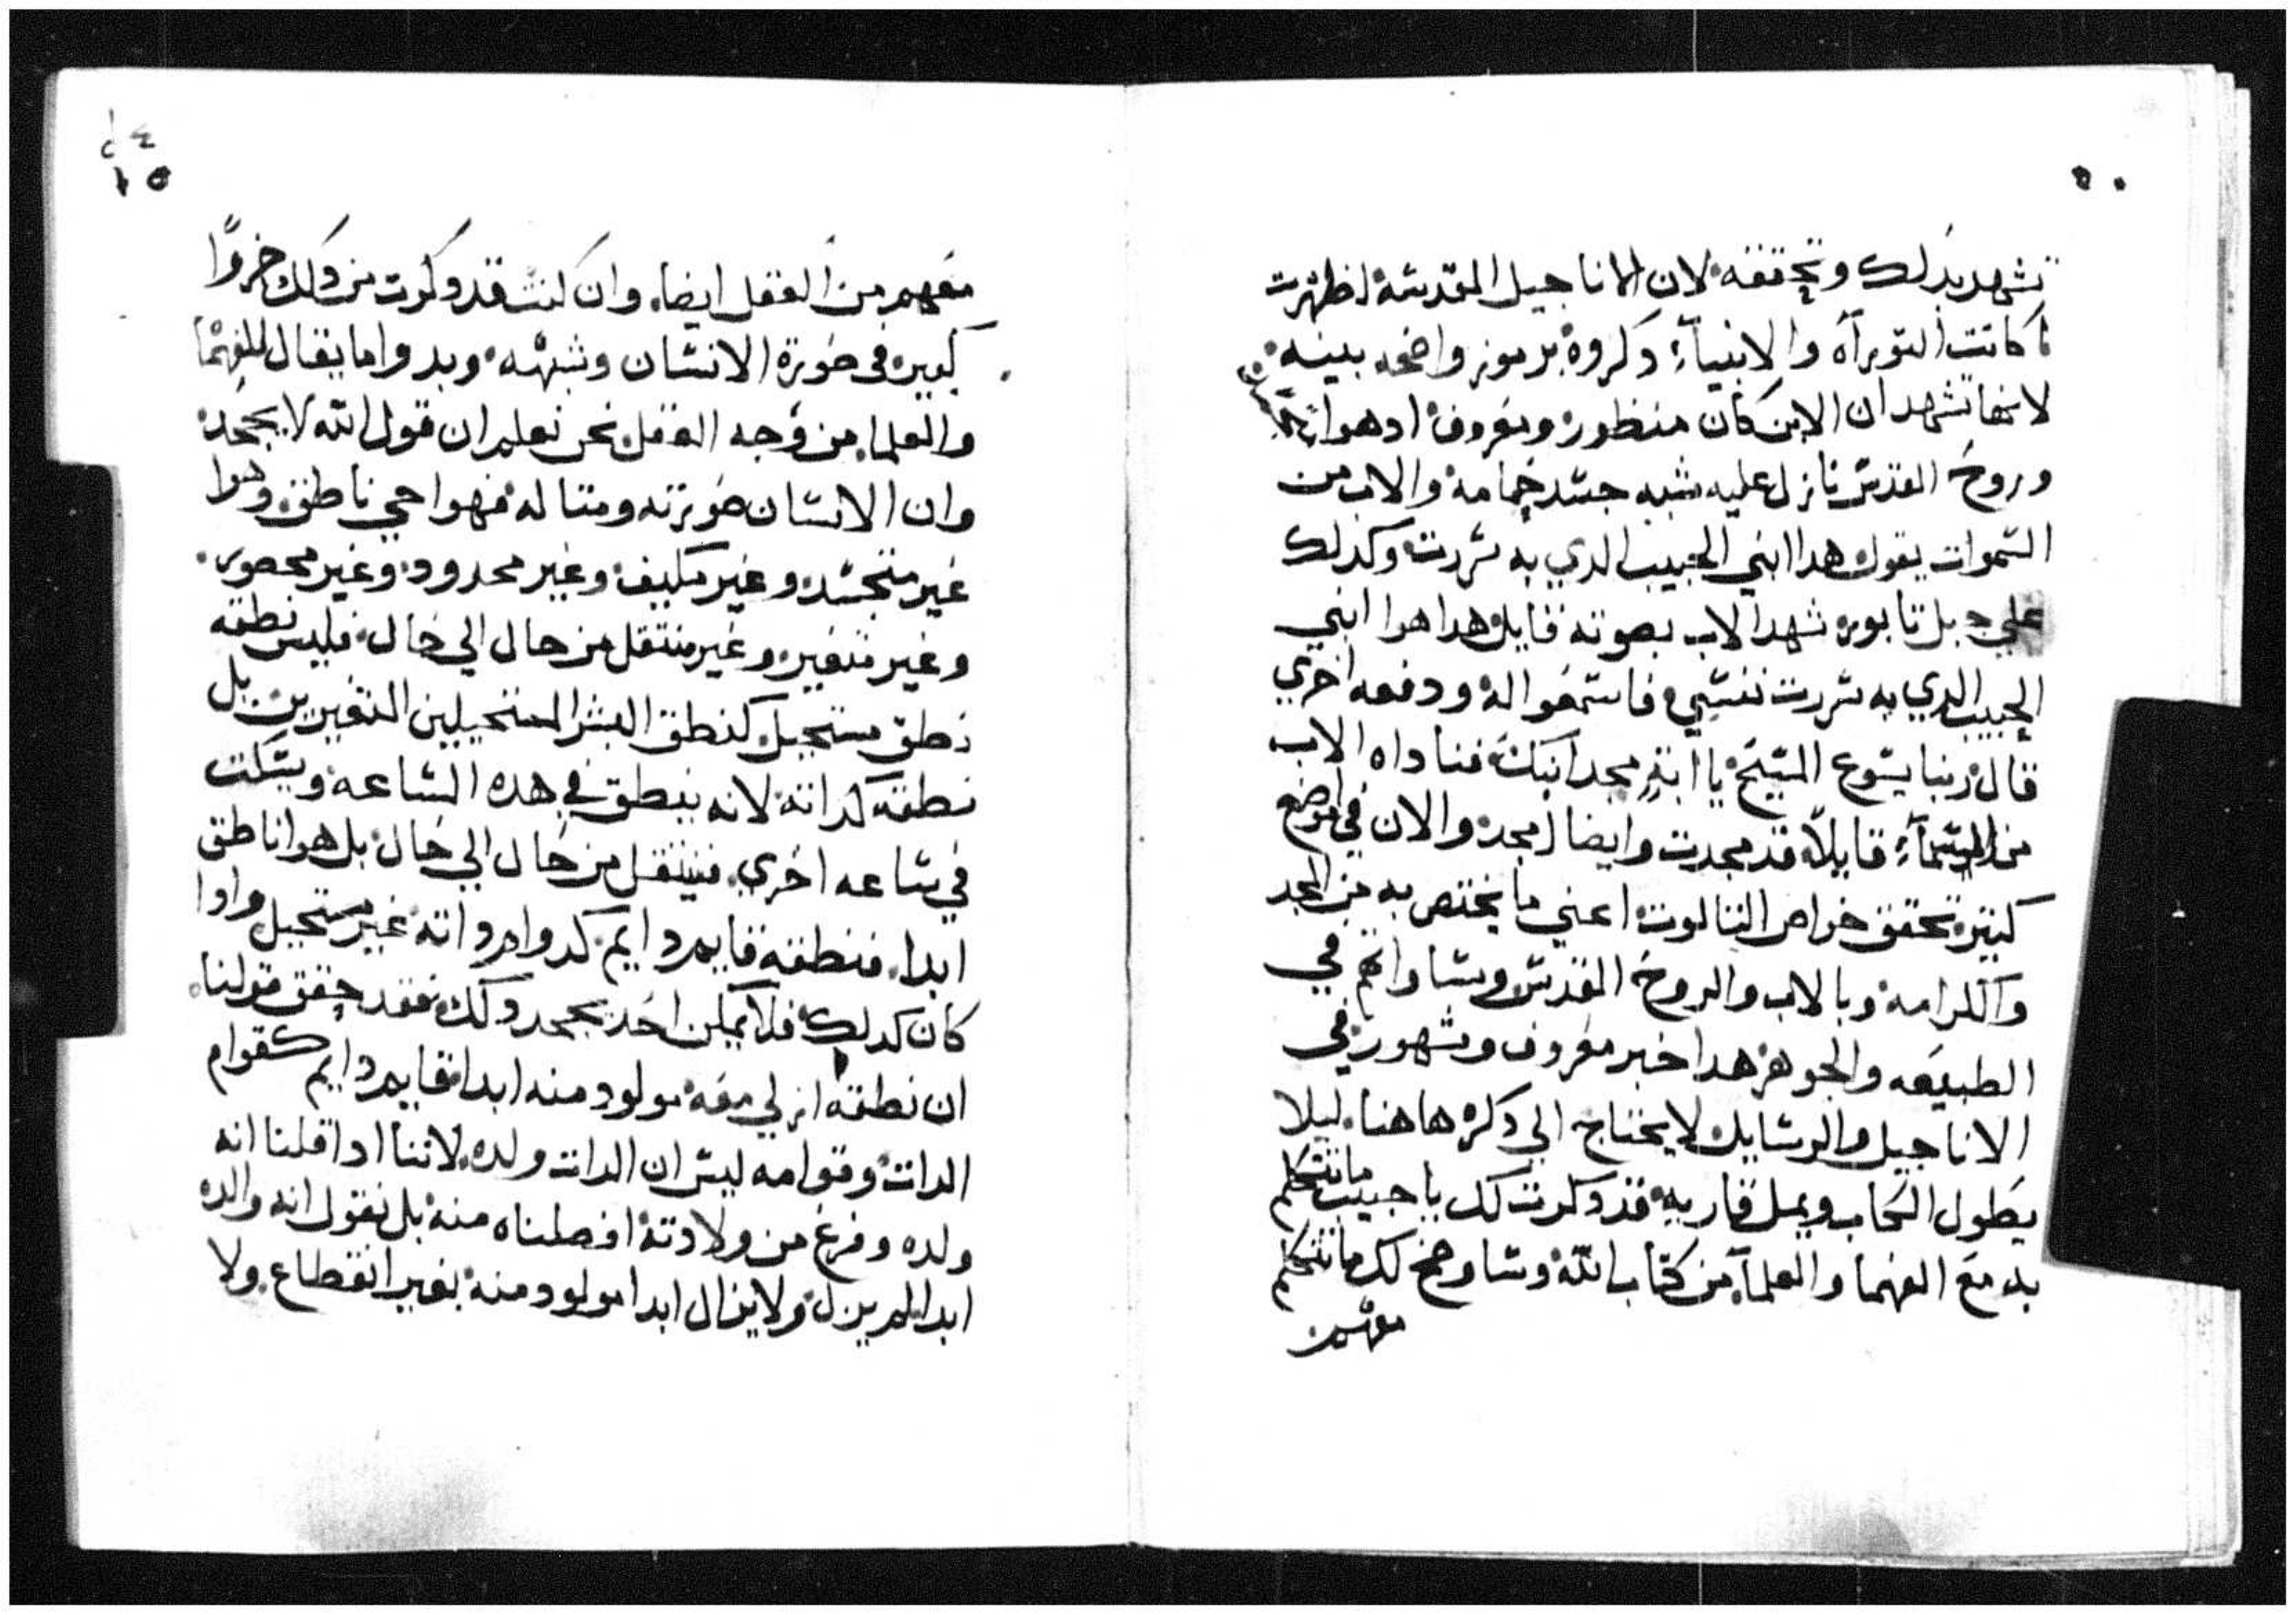 تشهد بدلك وتحققه لان الاناجيل المقدسه اظهرت
ما كانت التوراه والانبياء دكروه برموز واضحه بينه
لانها تشهد ان الابن كان منظور ومعروف ادهوا
وروح القدس نازل عليه شبه جسد حمامه والاب من
السموات يقول هدا ابني الحبيب الدي به سررت وكدلك
علي جبل تابور شهد الاب بصوته قايل هدا هوا ابني
الحبيب الدي به سررت نفسي فاسمعوا له ودفعه اخري
قال ربنا يسوع المسيح يا ابتِ مجد ابنك فناداه الاب
من السماء قايلاً قد مجدت وايضا امجد والان في مواضع
كتيره تحقق خواص التالوت اعني ما يختص به من المجد
والكرامه وبالاب والروح القدس ومساواتهم في
الطبيعه والجوهر هدا خبر معروف ومشهور في
الاناجيل والرسايل لا يحتاج الي دكره هاهنا ليلا
يطول الكتاب ويمل قاريه قد دكرت لك يا حبيب ما تتكلم
به مع الفهما والعلماء من كتاب الله وساوضح لك ما تتكلم
معهم من
٢٤
١٥
معهم من العقل ايضا وان كنت قد دكرت من دلك حروفاً
كبيره في صورة الانسان وشبهه وبدوا ما يقال للفهما
والعلما من وجه العقل نحن نعلم ان قول الله لا يجحد
وان الانسان صورته ومتاله فهوا حي ناطق وهوا
غير متجسد وغير مكيف وغير محدود وغير محصور
وغير متغير وغير منتقل من حال الي حال فليس نطقه
نطق مستحيل كنطق البشر المستحيلين المتغيرين بل
نطقه كداته لانه ينطق في هده الساعه ويسكت
في ساعه اخري فينتقل من حال الي حال بل هوا ناطق
ابدا فنطقه قايم دايم كدوام داته غير مستحيل وادا
كان كدلك فلا يمكن احد يجحد دلك فقد حقق قولنا
ان نطقه ازلي معه مولود منه ابدا قايم دايم كقوام
الدات وقوامه ليس ان الدات ولده لاننا ادا قلنا انه
ولده وفرغ من ولادته افصلناه منه بل نقول انه والده
ابدا لم يزل ولا يزال ابدا مولود منه بغير انقطاع ولا